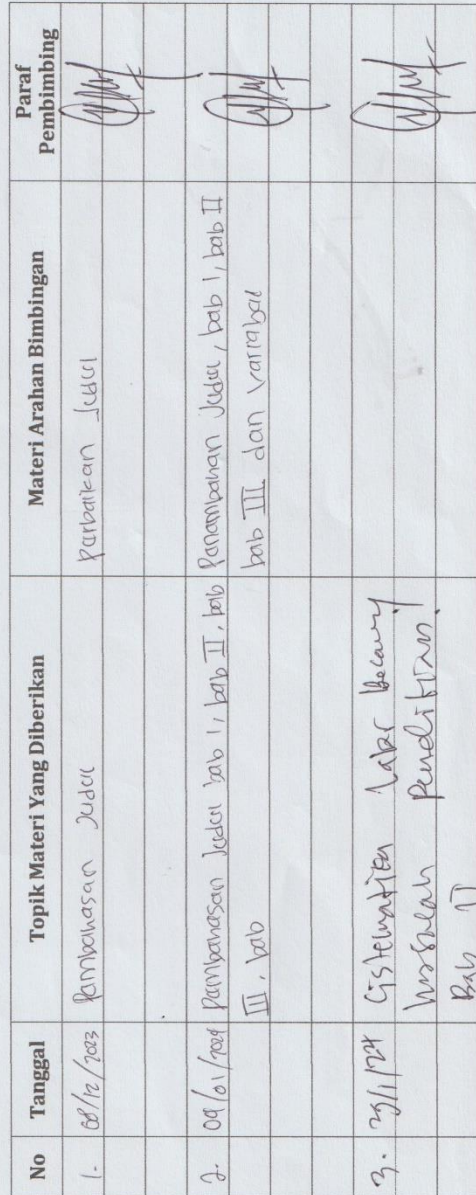 No Tanggal Topik Materi Yang Diberikan Materi Arahan Bimbingan Paraf Pembimbing
1. 08/12/2023 Pambahasan Judul Parbaikan Judul
2. 09/01/2024 Pambahasan Judul bab 1, bab II, bab Panambahan Judul, bab 1, bab II
III, bab bab III dan variabal
3. 25/1/24 Sistematika Latar Belakang
Masalah Penelitian!
Bab II